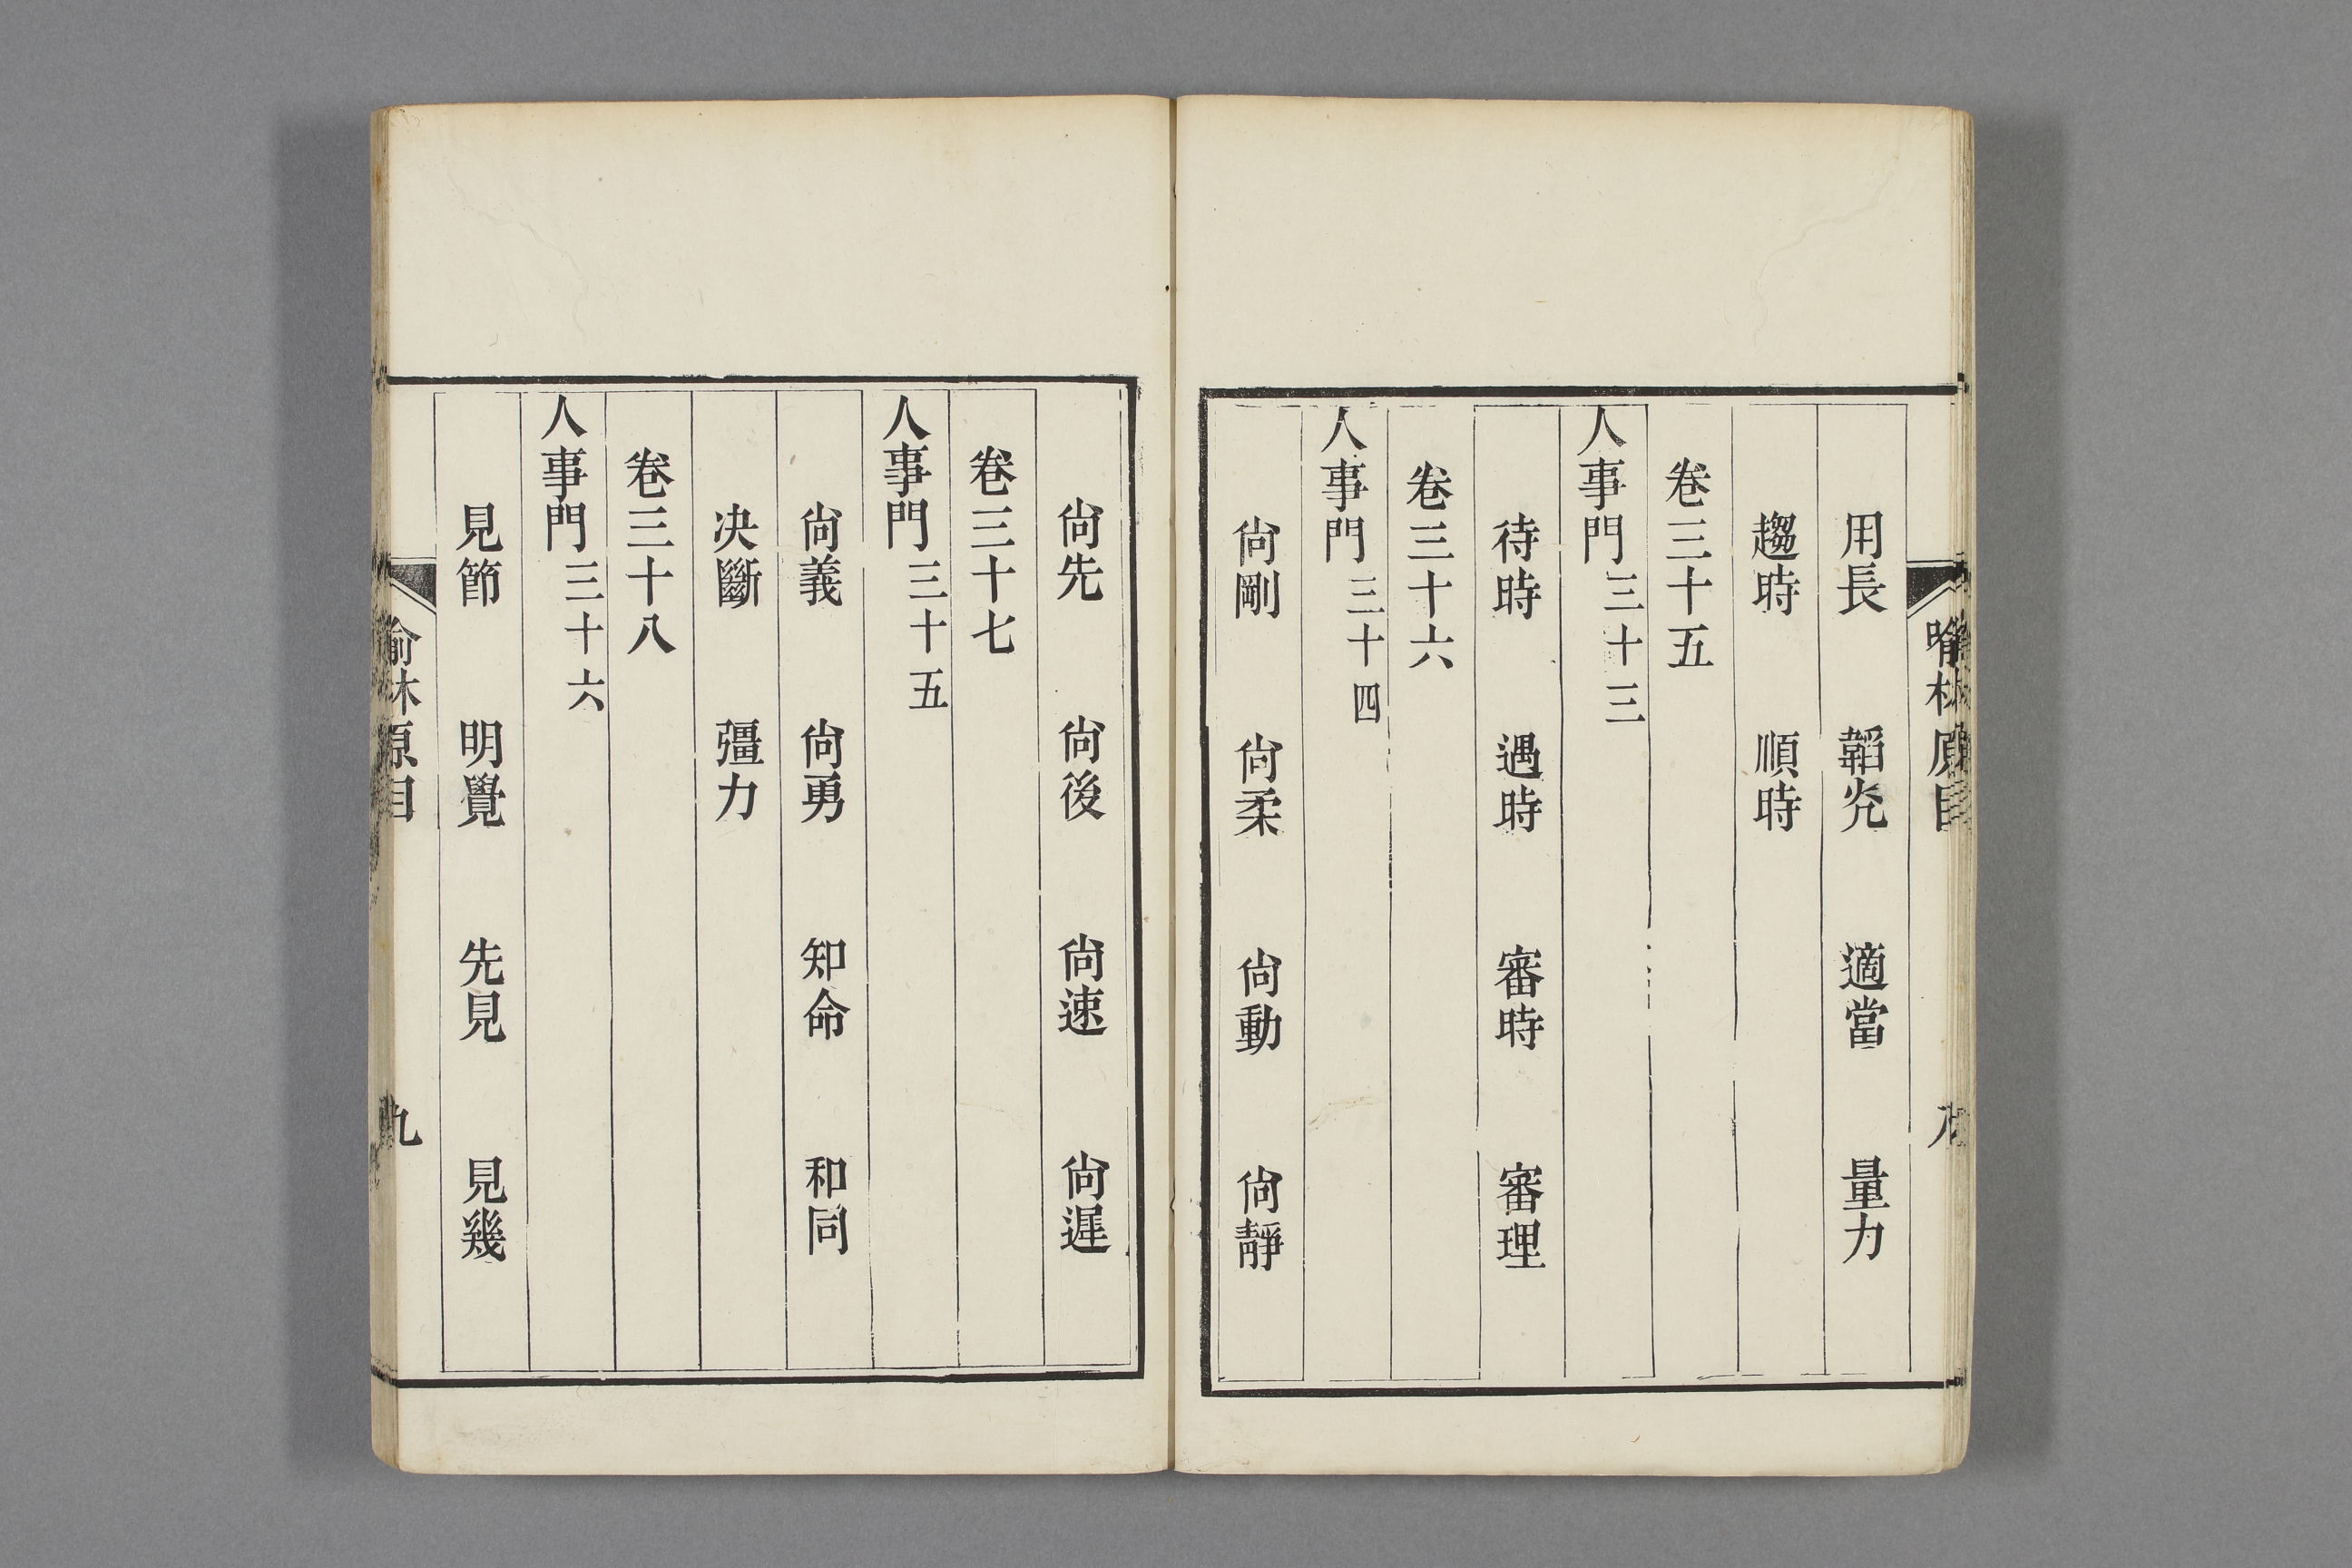 用長 韜光 適當 量力
趨時 順時
卷三十五
人事門三十三
待時 遇時 審時 審理
卷三十六
人事門三十四
尙剛 尙柔 尙動 尙靜
尙先 尙後 尙速 尙遲
卷三十七
人事門三十五
尙義 尙勇 知命 和同
决斷 彊力
卷三十八
人事門三十六
見節 明覺 先見 見幾
喻林原目 九